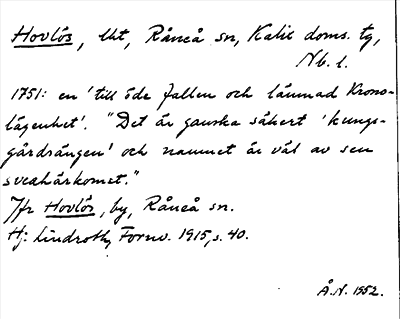 Hovlös, lht, Råneå sn, Kalix doms. tg,
Nb. l.
1751: en 'till öde fallen och lämnad Krono-
lägenhet'. "Det är ganska säkert 'kungs-
gårdrängen' och namnet är väl av sen
sveahärkomst."
Jfr Hovlös, by, Råneå sn.
Hj: Lindroth, Fornv. 1915, s. 40.
Å.N. 1952.